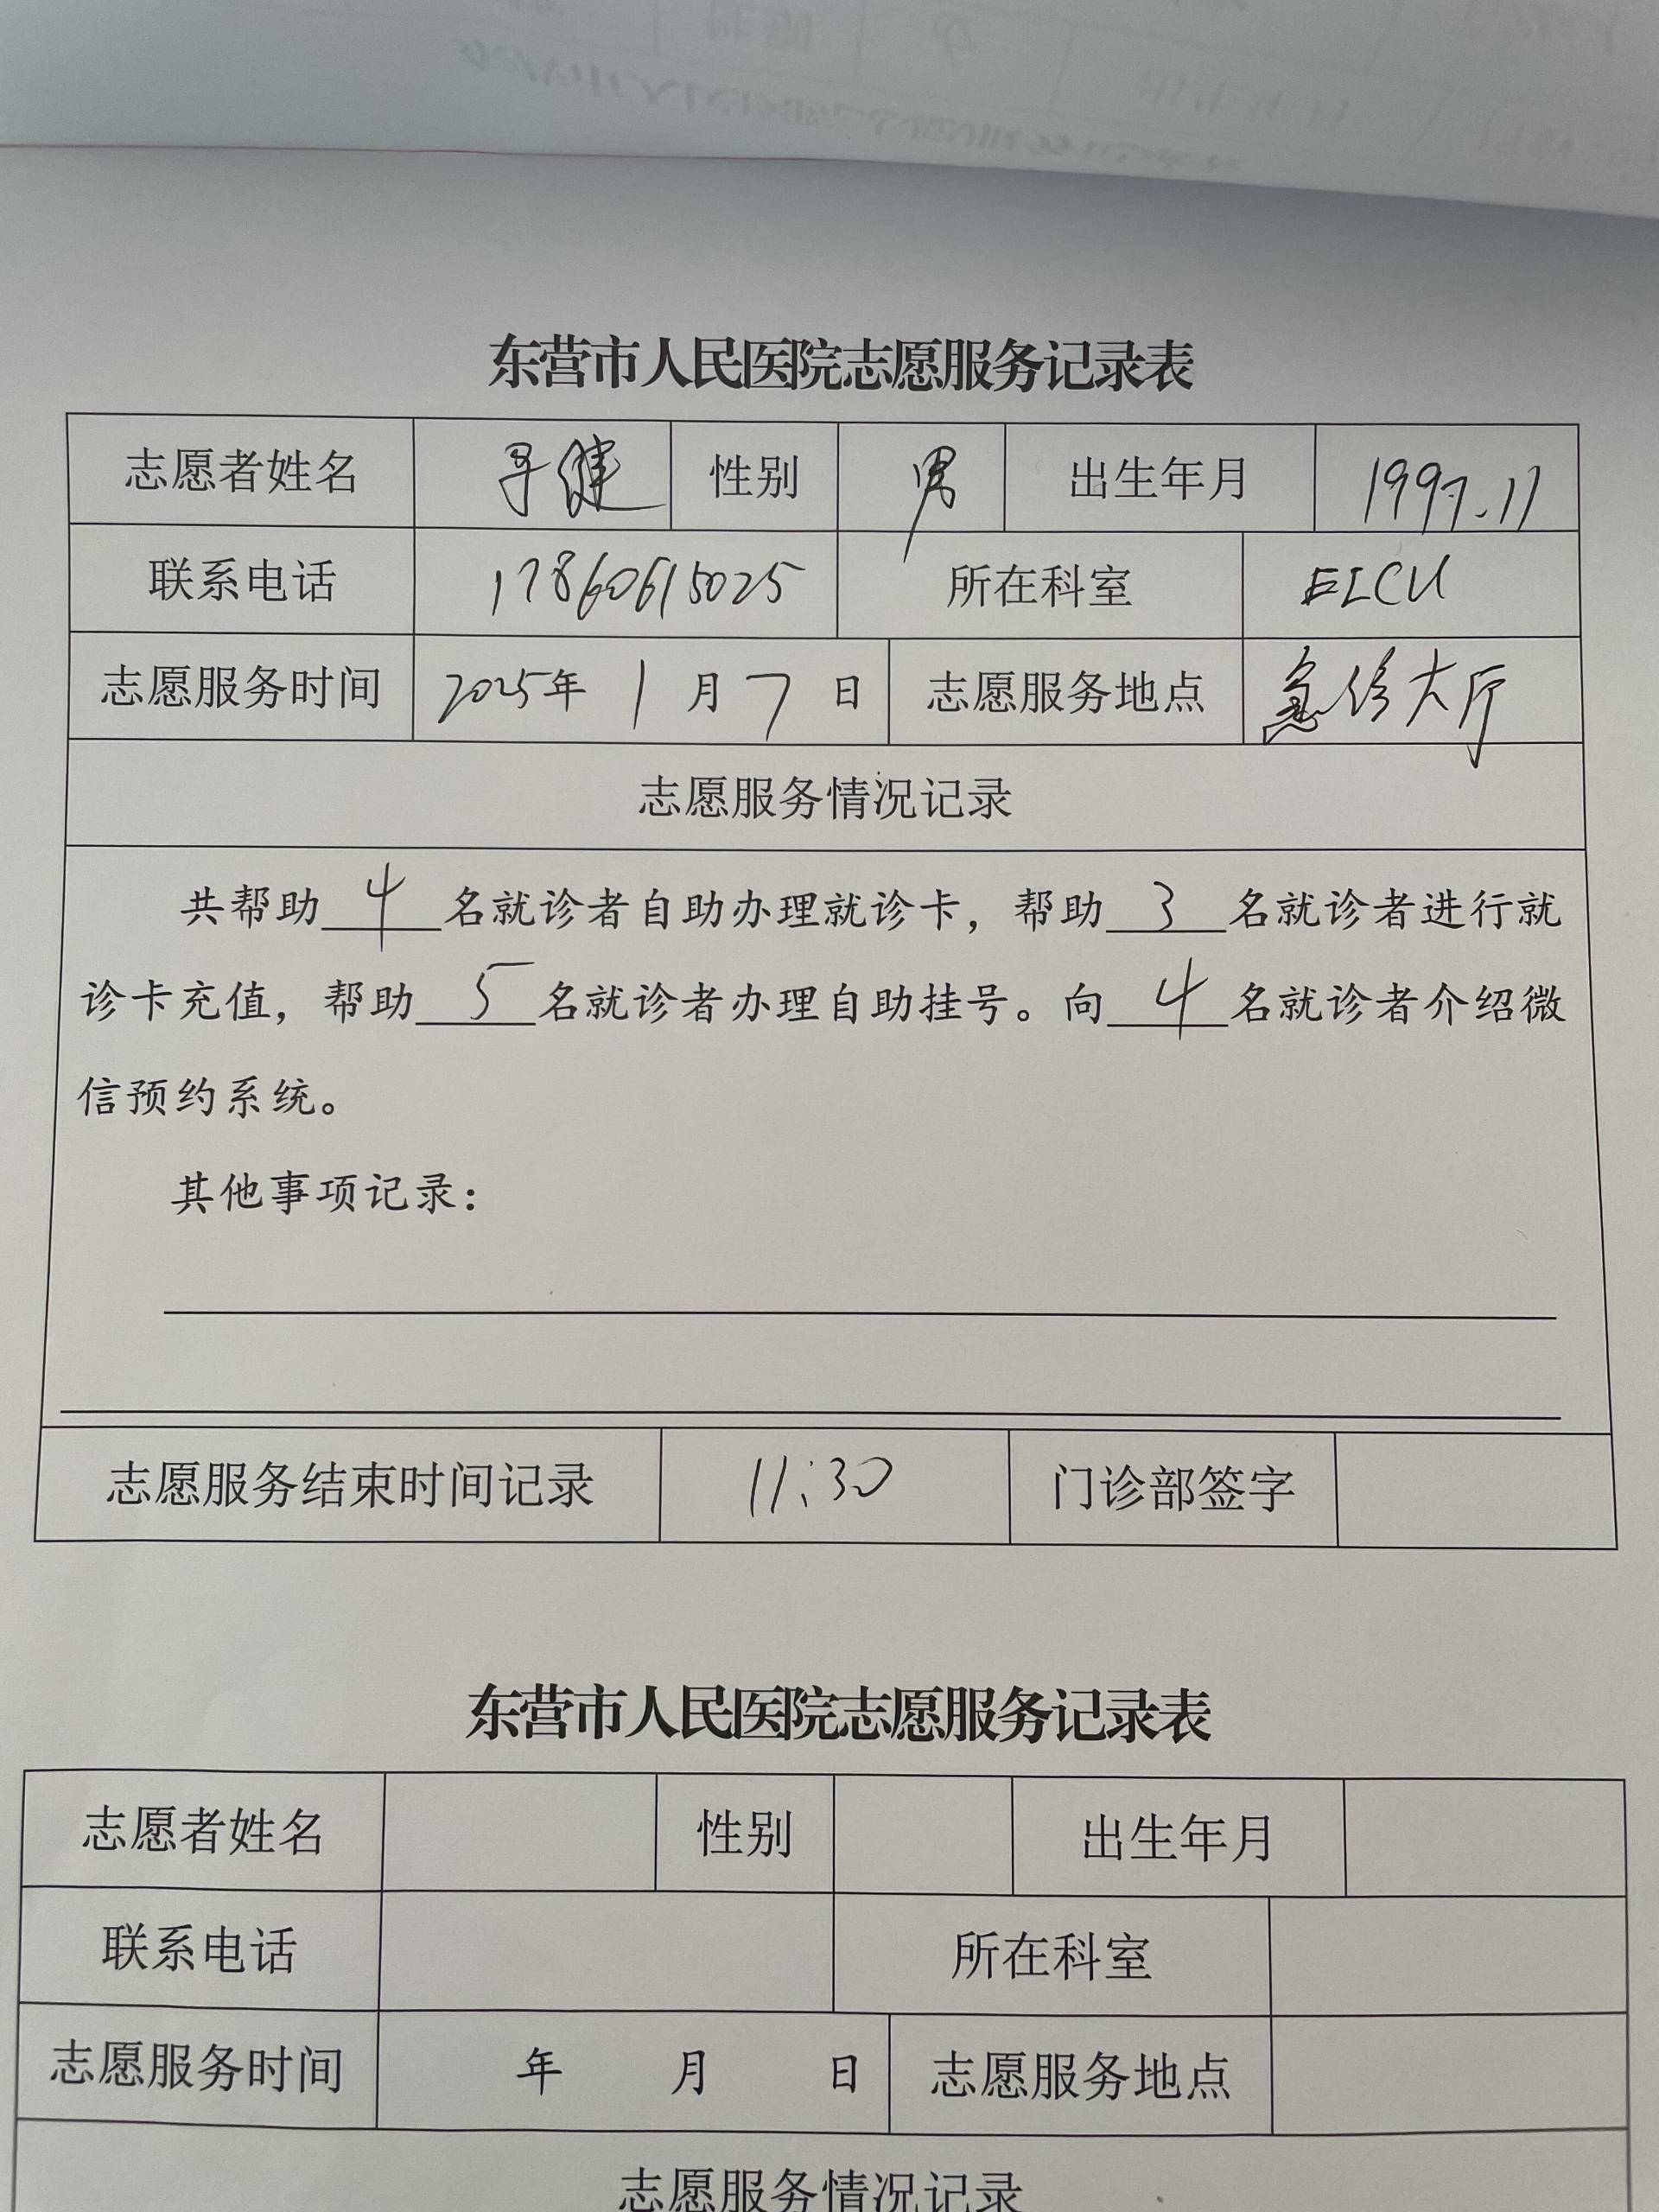 东营市人民医院志愿服务记录表
志愿者姓名 健 性别 男 出生年月 1997.11
联系电话 17860615025 所在科室 EICU
志愿服务时间 2025年 1 月 7 日 志愿服务地点 急诊大厅
志愿服务情况记录
共帮助 4 名就诊者自助办理就诊卡，帮助 3 名就诊者进行就
诊卡充值，帮助 5 名就诊者办理自助挂号。向 4 名就诊者介绍微
信预约系统。
其他事项记录：
志愿服务结束时间记录 11:30 门诊部签字
东营市人民医院志愿服务记录表
志愿者姓名 性别 出生年月
联系电话 所在科室
志愿服务时间 年 月 日 志愿服务地点
志愿服务情况记录